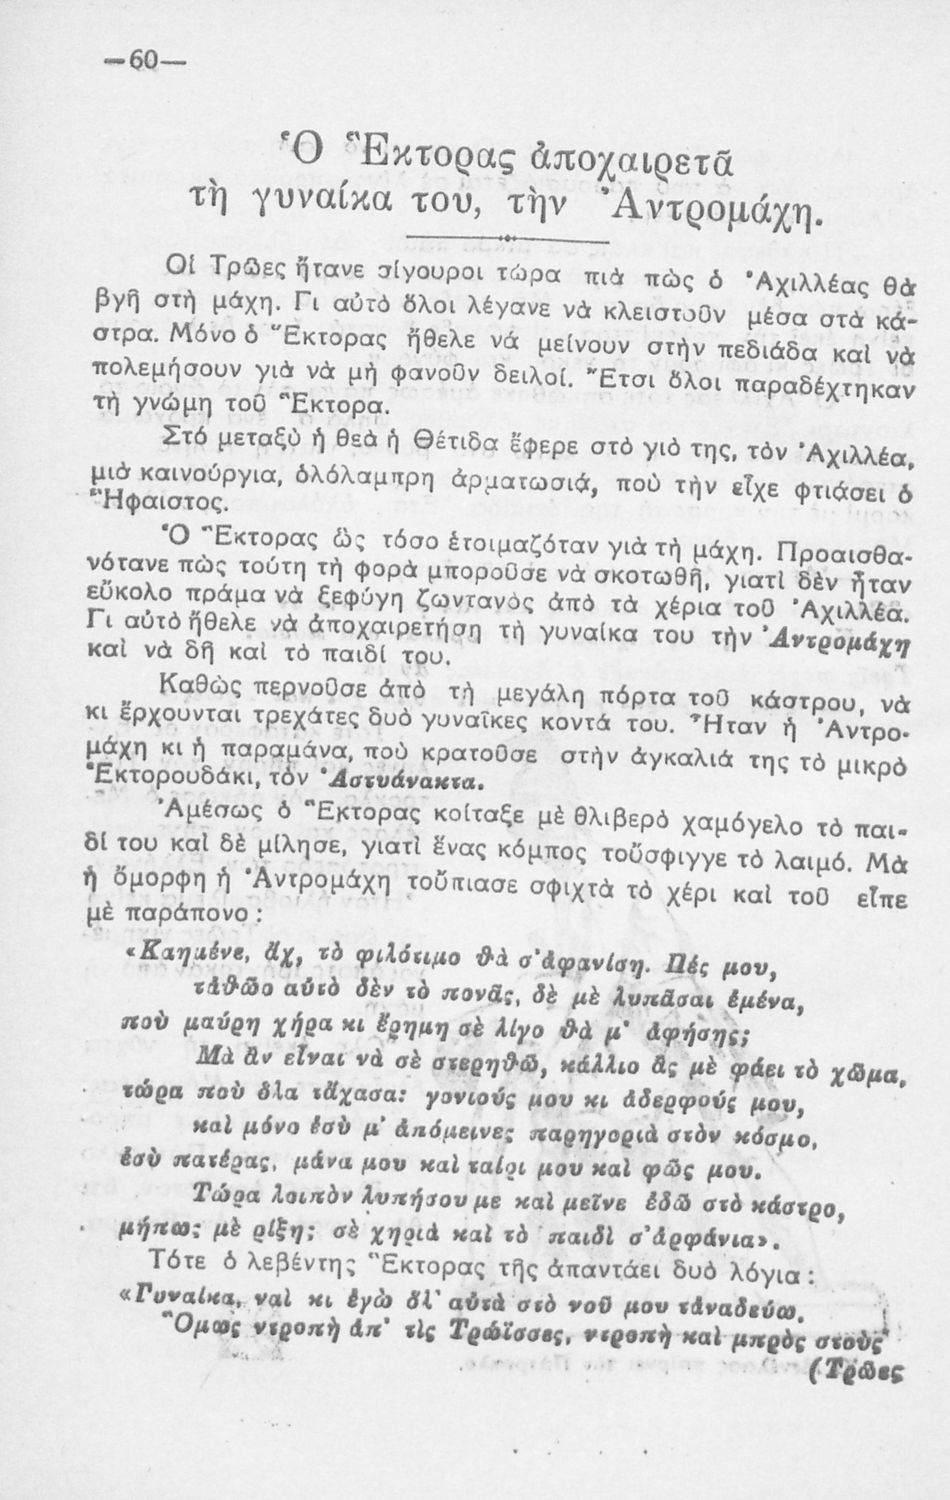 —60—
Ὁ Ἕκτορας ἀποχαιρετᾶ
τὴ γυναίκα του, τὴν Ἀντρομάχη.
Οἱ Τρῶες ἤτανε σίγουροι τώρα πιὰ πὼς ὁ Ἀχιλλέας θὰ
βγῆ στὴ μάχη. Γι αὐτὸ ὅλοι λέγανε νὰ κλειστοῦν μέσα στὰ κά-
στρα. Μόνο ὁ Ἕκτορας ἤθελε νά μείνουν στὴν πεδιάδα καὶ νὰ
πολεμήσουν γιὰ νὰ μὴ φανοῦν δειλοί. Ἔτσι ὅλοι παραδέχτηκαν
τὴ γνώμη τοῦ Ἕκτορα.
Στό μεταξὺ ἡ θεὰ ἡ Θέτιδα ἔφερε στὸ γιὸ της, τὸν Ἀχιλλέα,
μιὰ καινούργια, ὁλόλαμπρη ἀρματωσιά, ποὺ τὴν εἶχε φτιάσει ὁ
Ἥφαιστος.
Ὁ Ἕκτορας ὣς τόσο ἑτοιμαζόταν γιὰ τὴ μάχη. Προαισθα-
νότανε πὼς τούτη τὴ φορὰ μποροῦσε νὰ σκοτωθῆ, γιατὶ δὲν ἦταν
εὔκολο πράμα νὰ ξεφύγη ζωντανὸς ἀπὸ τὰ χέρια τοῦ Ἀχιλλέα.
Γι αὐτὸ ἤθελε νὰ ἀποχαιρετήση τὴ γυναίκα του τὴν Ἀντρομάχη
καὶ νὰ δῆ καὶ τὸ παιδί του.
Καθὼς περνοῦσε ἀπὸ τὴ μεγάλη πόρτα τοῦ κάστρου, νὰ
κι ἔρχουνται τρεχάτες δυὸ γυναῖκες κοντά του. Ἦταν ἡ Ἀντρο-
μάχη κι ἡ παραμάνα, ποὺ κρατοῦσε στὴν ἀγκαλιά της τὸ μικρὸ
Ἑκτορουδάκι, τὸν Ἀστυάνακτα.
Ἀμέσως ὁ Ἕκτορας κοίταξε μὲ θλιβερὸ χαμόγελο τὸ παι-
δί του καὶ δὲ μίλησε, γιατὶ ἕνας κόμπος τοὔσφιγγε τὸ λαιμό. Μὰ
ἡ ὄμορφη ἡ Ἀντρομάχη τοὔπιασε σφιχτὰ τὸ χέρι καὶ τοῦ εἶπε
μὲ παράπονο :
«Καημένε, ἄχ, τὸ φιλότιμο θὰ σ' ἀφανίση. Πές μου,
τἀθῶο αὐτὸ δὲν τὸ πονᾶς, δὲ μὲ λυπᾶσαι ἐμένα,
ποὺ μαύρη χήρα κι ἔρημη σὲ λίγο θὰ μ' ἀφήσης;
Μὰ ἂν εἶναι νὰ σὲ στερηθῶ, κάλλιο ἂς μὲ φάει τὸ χῶμα,
τώρα ποὺ ὅλα τἄχασα: γονιούς μου κι ἀδερφούς μου,
καὶ μόνο ἐσὺ μ' ἀπόμεινες παρηγοριὰ στὸν κόσμο,
ἐσὺ πατέρας, μάνα μου καὶ ταίρι μου καὶ φῶς μου.
Τώρα λοιπὸν λυπήσου με καὶ μεῖνε ἐδῶ στὸ κάστρο,
μήπως μὲ ρίξης σὲ χηριὰ καὶ τὸ παιδὶ σ' ἀρφάνια».
Τότε ὁ λεβέντης Ἕκτορας τῆς ἀπαντάει δυὸ λόγια :
«Γυναίκα, ναὶ κι ἐγὼ ὅλ' αὐτὰ στὸ νοῦ μου τἀναδεύω.
Ὅμως ντροπὴ ἀπ' τὶς Τρώϊσσες, ντροπὴ καὶ μπρὸς στοὺς
(Τρῶες